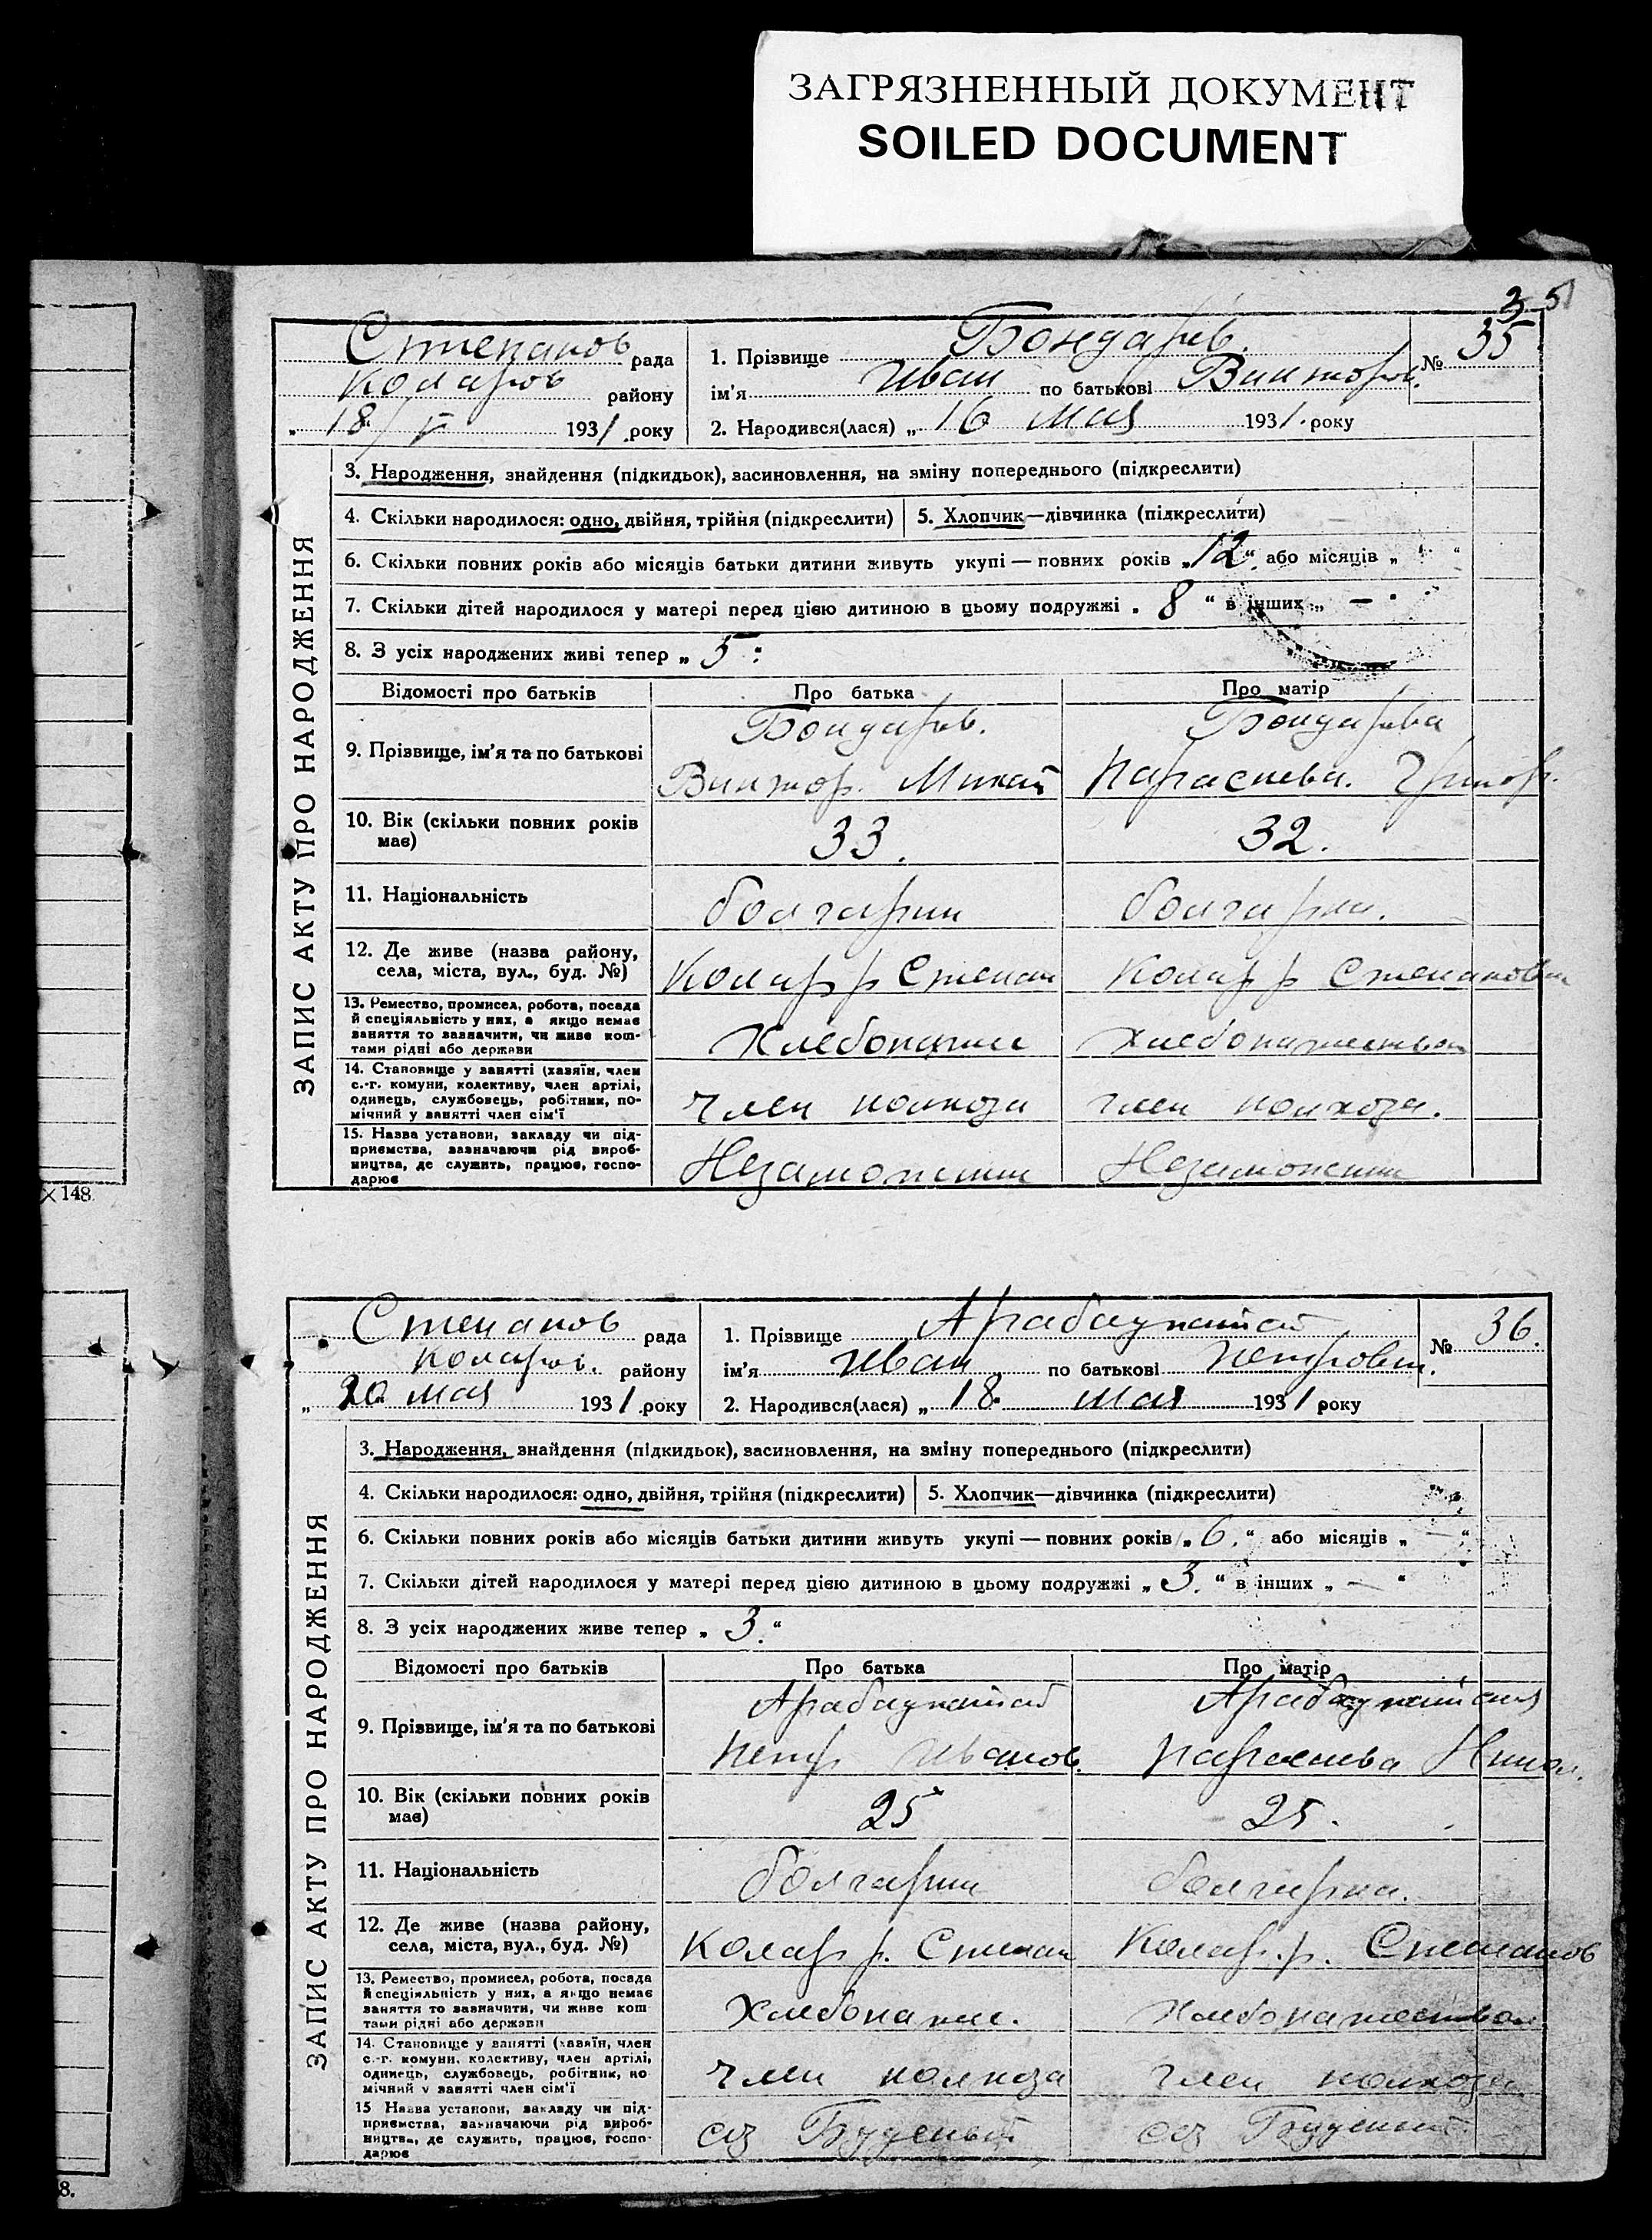 ЗАГРЯЗНЕННЫЙ ДОКУМЕНТ
SOILED DOCUMENT
35
Степанов рада
Коларов району
„ 18/V 1931 року
1. Прізвище Бондарев.
ім'я Иван по батькові Виктор.
№ 35
2. Народився(лася) „ 16 мая 1931 року
ЗАПИС АКТУ ПРО НАРОДЖЕННЯ
3. Народження, знайдення (підкидьок), засиновлення, на зміну попереднього (підкреслити)
4. Скільки народилося: одно, двійня, трійня (підкреслити) 5. Хлопчик—дівчинка (підкреслити)
6. Скільки повних років або місяців батьки дитини живуть укупі — повних років „12“ або місяців „ “
7. Скільки дітей народилося у матері перед цією дитиною в цьому подружжі „ 8 “ в інших „ —
8. З усіх народжених живі тепер „ 5
Відомості про батьків Про батька Про матір
9. Прізвище, ім'я та по батькові
Бондарев. Бондарева
Виктор. Михай Параскева. Григор.
10. Вік (скільки повних років має) 33. 32.
11. Національність болгарин болгарка.
12. Де живе (назва району,
села, міста, вул., буд. №) Колар р Степан Колар р Степановка
13. Ремество, промисел, робота, посада
й спеціяльність у них, а якщо немає
заняття то зазначити, чи живе кош-
тами рідні або держави
Хлебопашес Хлебопашество
14. Становище у занятті (хазяїн, член
с.-г. комуни, колективу, член артілі,
одинець, службовець, робітник, по-
мічний у занятті член сім'ї
член колхоза член колхоза.
15. Назва установи, закладу чи під-
приємства, зазначаючи рід вироб-
ництва, де служить, працює, госпо-
дарює
Незаможник Незаможник
×148.
Степанов рада
Коларов. району
„ 20 мая 1931 року
1. Прізвище
ім'я Иван по батькові Петрович.
№ 36.
2. Народився(лася) „ 18 мая 1931 року
ЗАПИС АКТУ ПРО НАРОДЖЕННЯ
3. Народження, знайдення (підкидьок), засиновлення, на зміну попереднього (підкреслити)
4. Скільки народилося: одно, двійня, трійня (підкреслити) 5. Хлопчик—дівчинка (підкреслити)
6. Скільки повних років або місяців батьки дитини живуть укупі — повних років „ 6. “ або місяців „ — “
7. Скільки дітей народилося у матері перед цією дитиною в цьому подружжі „ 3. “ в інших „ — “
8. З усіх народжених живе тепер „ 3. “
Відомості про батьків Про батька Про матір
9. Прізвище, ім'я та по батькові
Петр Иванов. Параскева Никол.
10. Вік (скільки повних років має) 25 25.
11. Національність болгарин болгарка.
12. Де живе (назва району,
села, міста, вул., буд. №) Колар р. Степан Колар. р. Степанов
13. Ремество, промисел, робота, посада
й спеціяльність у них, а якщо немає
заняття то зазначити, чи живе кош
тами рідні або держави
Хлебопашес. Хлебопашество
14. Становище у занятті (хазяїн, член
с.-г. комуни, колективу, член артілі,
одинець, службовець, робітник, по
мічний у занятті член сім'ї
член колхоза член колхоза
15 Назва установи, закладу чи під-
приємства, зазначаючи рід вироб-
ництва, де служить, працює, госпо-
дарює
соз Буденый соз Буденый
8.